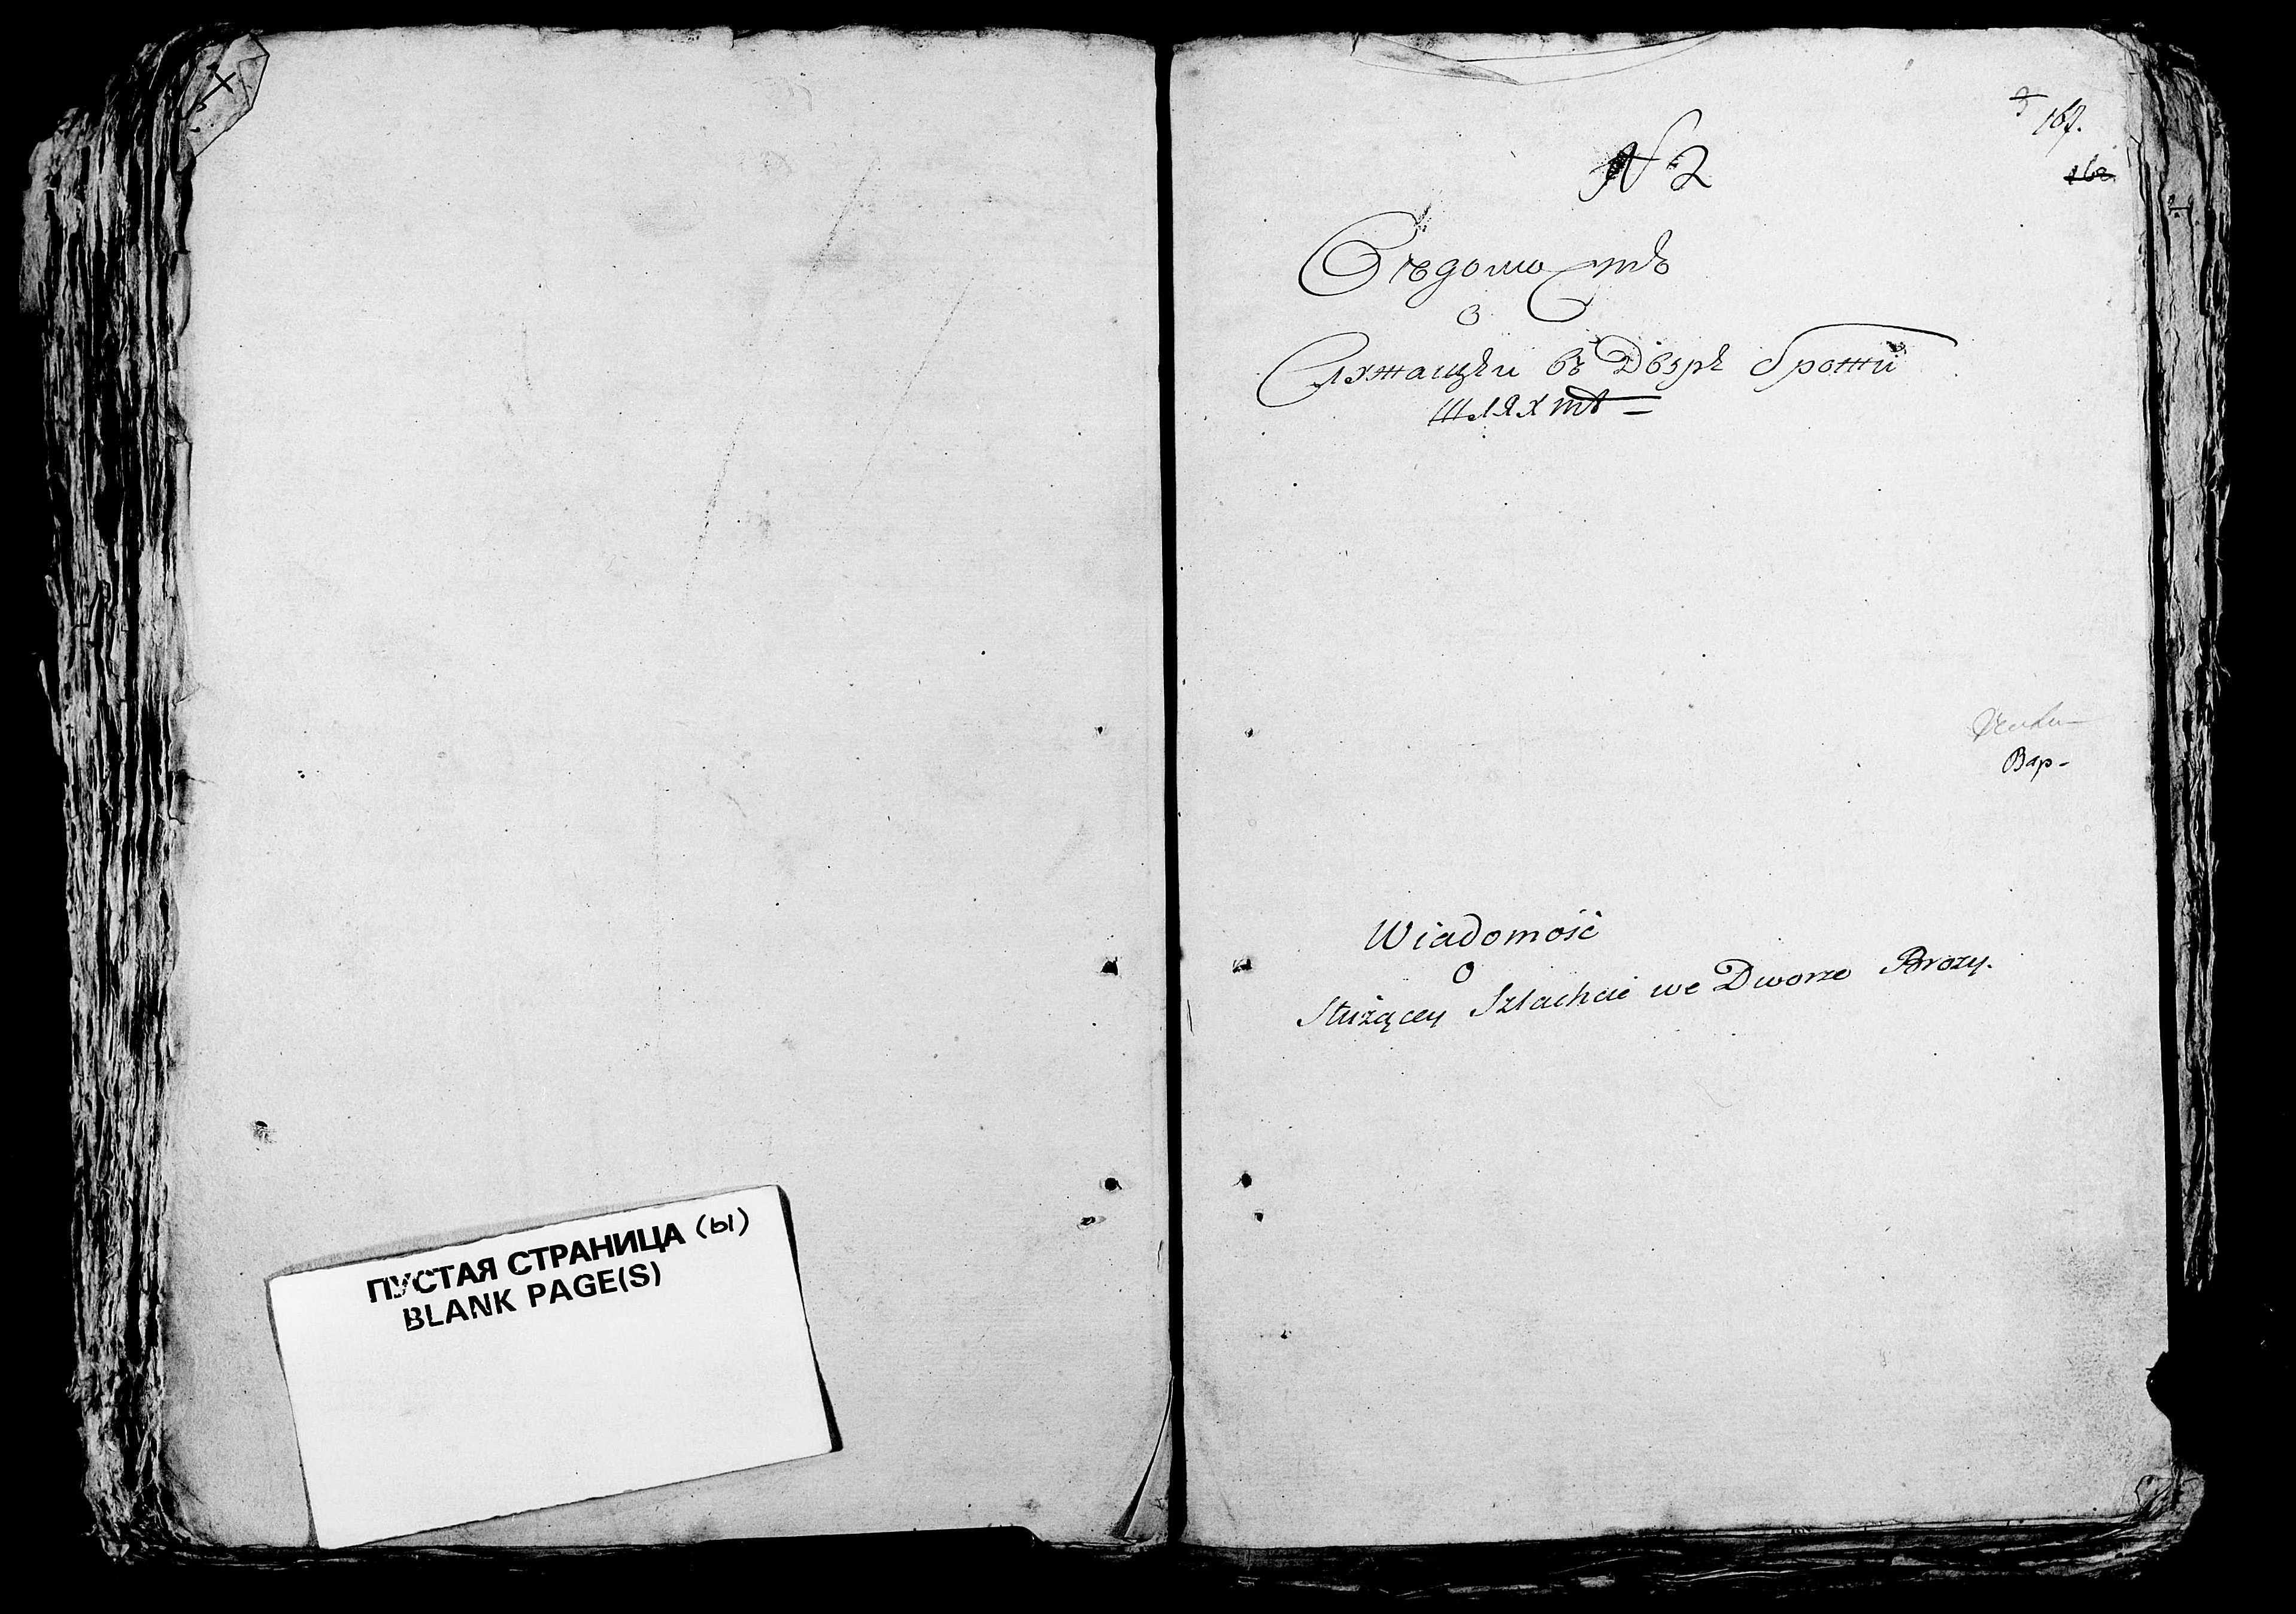 ПУСТАЯ СТРАНИЦА (Ы)
BLANK PAGE(S)
№ 2
167.
Вѣдомость
О
Служащѣй въ Дворѣ Брожи
шляхтѣ
Вар-
Wiadomość
O
Służącey Szlachcie we Dworze Brozy.